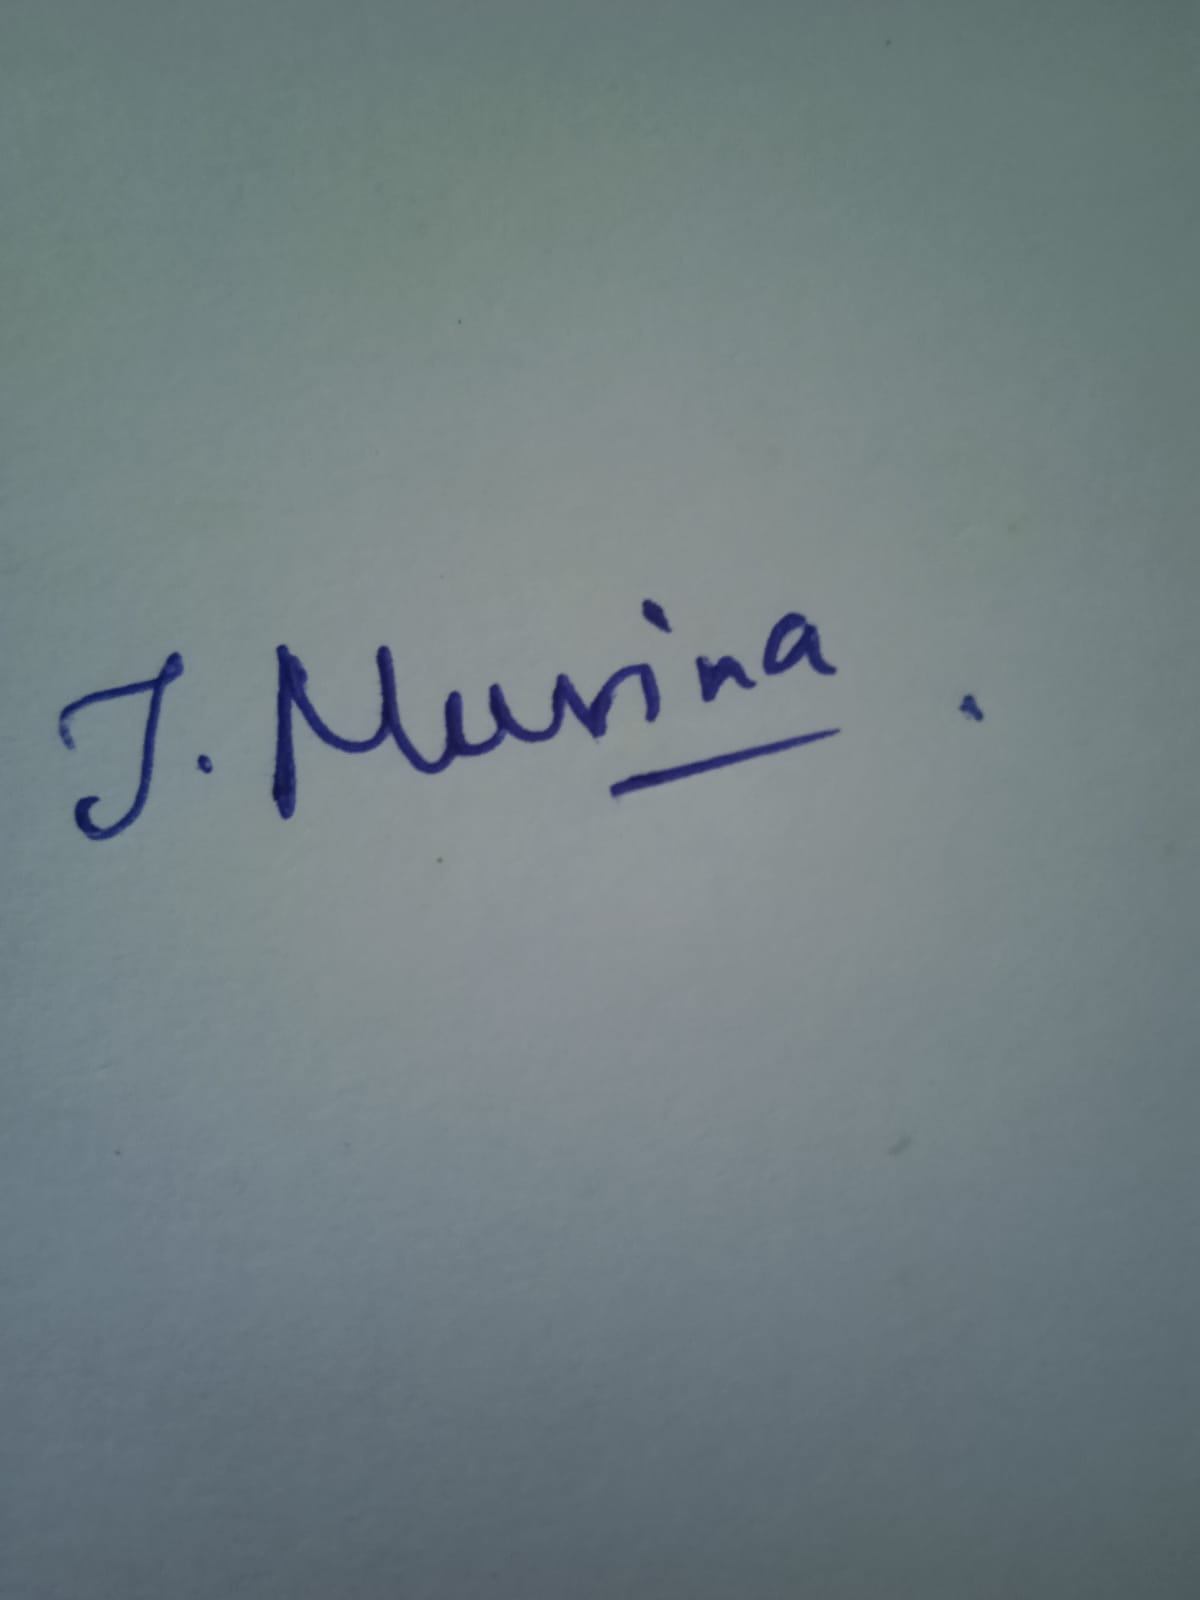 J. Murina.